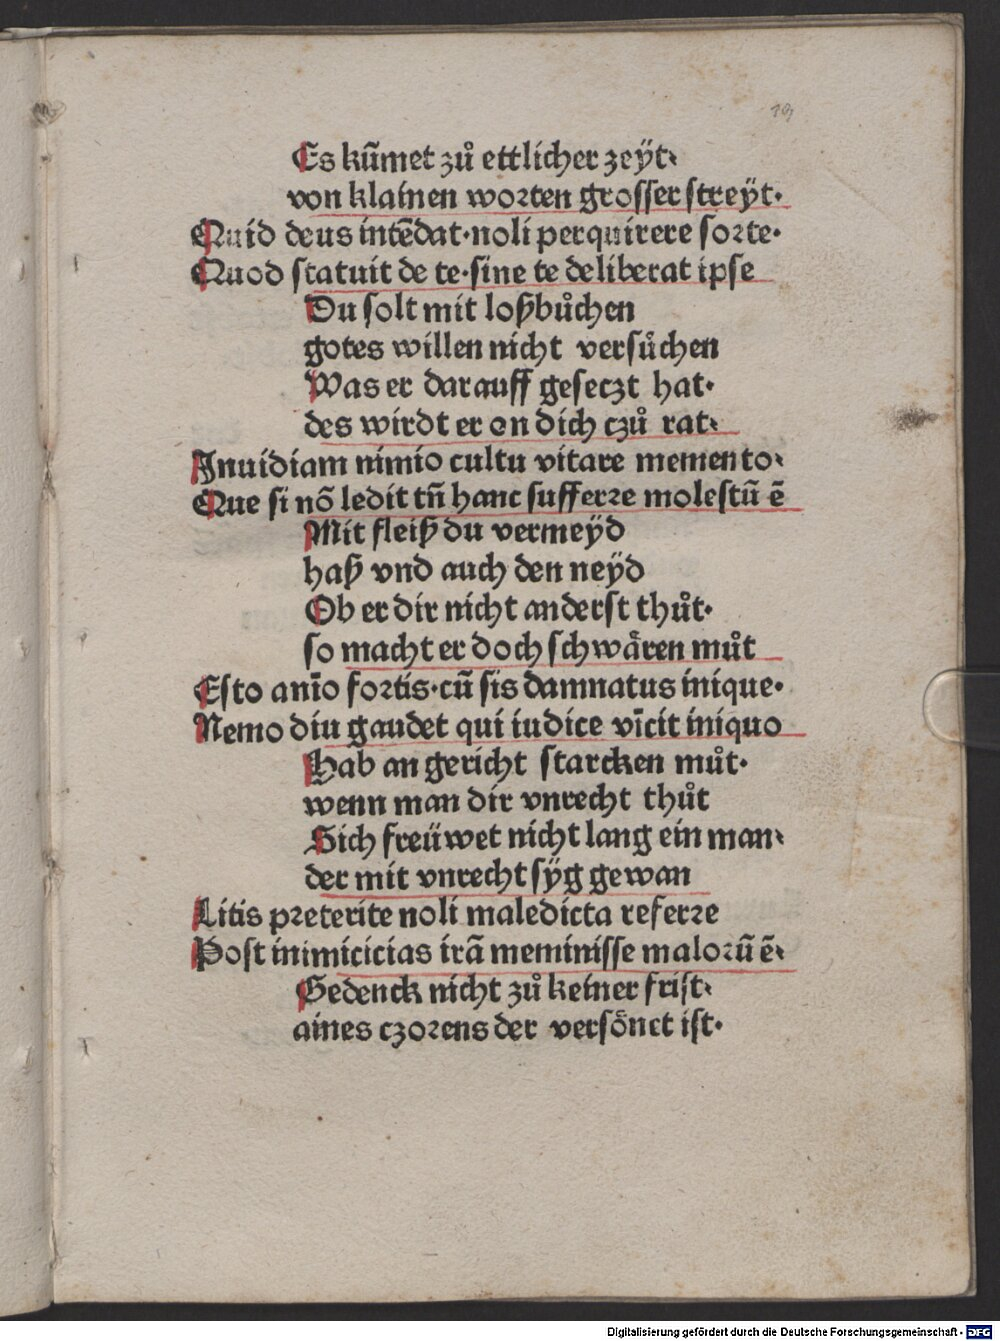 19
Es kūmet zů ettlicher zeÿt·
von klainen worten grosser streÿt·
Quid deus intēdat·noli perquirere sorte·
Quod statuit de te·sine te deliberat ipse
Du solt mit loßbůchen
gotes willen nicht versůchen
Was er darauff geseczt hat·
des wirdt er on dich czů rat·
Inuidiam nimio cultu vitare memento·
Que si nō ledit tn̄ hanc sufferre molestū ē
Mit fleiß du vermeÿd
haß vnd auch den neÿd
Ob er dir nicht anderst thůt·
so macht er doch schwären můt
Esto anīo fortis·cū sis damnatus inique·
Nemo diu gaudet qui iudice vīcit iniquo
Hab an gericht starcken můt·
wenn man dir vnrecht thůt
Sich freüwet nicht lang ein man·
der mit vnrecht sÿg gewan
Litis preterite noli maledicta referre
Post inimicicias irā meminisse malorū ē·
Gedenck nicht zů keiner frist·
aines czorens der versönet ist·
Digitalisierung gefördert durch die Deutsche Forschungsgemeinschaft - DFG